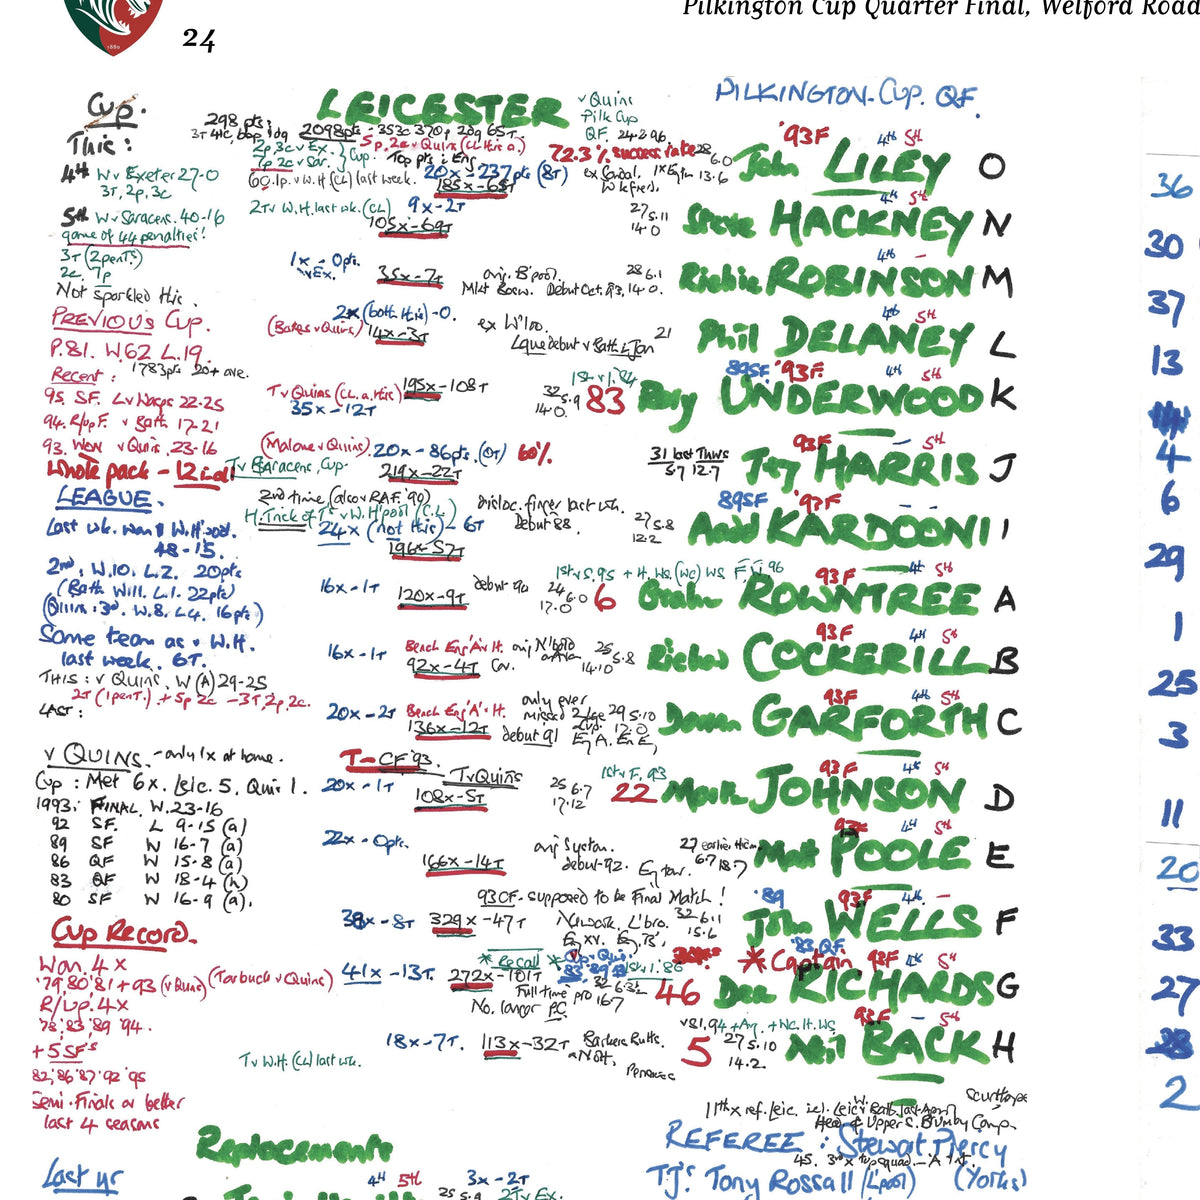 Pilkington Cup Quarter Final, Welford Road
1880
24
Cup.
LEICESTER
v Quins
Pilk Cup
QF. 24.2.96.
PILKINGTON-CUP. QF.
298 pts:
2098pts - 353c 370p 2dg 65T.
5p, 2c v Quins (CL this a.)
2p 3c v Ex.
7p 2c v Sar.
Cup.
Top pts in Eng.
72.3% success rate
'93F 4th 5th
John LILEY O
This:
4th W v Exeter 27-0
3T, 2p, 3c
60. 1p. v W.H (CL) last week.
20x - 237pts (8T)
185x - 65T
2T v W.H. last wk. (CL)
9x - 2T
105x - 69T
27 5.11
14.0
4th 5th
Steve HACKNEY N
5th W v Saracens. 40-16
game of 44 penalties!
3T (2 penTs)
2c. 7p
Not sparkled this.
1x - 0pts.
v Ex.
35x - 7T
orig. B'pool.
Mkt Bosw. Debut Oct. 93, 14.0.
28 6.1
4th -
Richie ROBINSON M
PREVIOUS CUP.
P.81. W62 L.19.
1783pts 20+ ave.
2x (both this) - 0.
(Bates v Quins)
14x - 3T
ex W'loo.
Lgue debut v Bath Jan
21
4th 5th
Phil DELANEY L
Recent:
95. SF. L v Wasps 22-25
94. R/up F. v Bath 17-21
93. Won v Quins. 23-16
T v Quins (CL. a. this)
195x - 108T
35x - 12T
32 5.9
14.0.
1st v I. 84
83
89SF. '93F. 4th 5th
Rory UNDERWOOD K
Whole pack - 12 in all
T v Saracens, Cup.
(Malone v Quins)
20x - 86pts. (0T) 60%
219x - 22T
31 last Thurs
5.7 12.7
93F - 5th
Jez HARRIS J
LEAGUE.
Last wk. won v W.H'pool.
48-15.
2nd, W.10. L.2. 20pts
(Bath W11. L.1. 22pts)
(Quins: 3rd. W.8. L4. 16pts)
2nd time (also v RAF. '90)
H. Trick of Ts v W.H'pool (C.L)
24x (not this) - 6T
196x - 57T
disloc. finger last wk.
Debut 88.
27 5.8
12.2
89SF '93F - -
Aadel KARDOONI I
16x - 1T
120x - 9T
debut 90
24 6.0
17.0
6
93F 4th 5th
Graham ROWNTREE A
Same team as v W.H.
last week. 6T.
THIS: v Quins. W (A) 29-25
2T (1 penT.) + 5p 2c - 3T, 2p, 2c.
LAST:
16x - 1T
Bench Eng 'A' v H.
92x - 4T
Cov.
25 5.8
14.10
93F 4th 5th
Richard COCKERILL B
20x - 2T
Bench Eng 'A' v H.
136x - 12T
debut 91
only ever
missed 2 Lge
Cup.
29 5.10
93F 4th 5th
Darren GARFORTH C
v QUINS. - only 1x at home.
Cup: Met 6x. Leic. 5, Quins 1.
1993: FINAL. W. 23-16
92 SF. L 9-15 (a)
89 SF W 16-7 (a)
86 QF W 15-8 (a)
83 QF W 18-4 (h)
80 SF W 16-9 (a).
T - CF '93.
T v Quins
20x - 1T
108x - 5T
26 6.7
17.12
1st v F. 93
22
93F 4th 5th
Martin JOHNSON D
22x - 0pts.
166x - 14T
orig Syston.
debut - 92.
Eng tour.
6.7 18.7
93F 4th 5th
Matt POOLE E
93CF - supposed to be Final Match!
38x - 8T
329x - 47T
Newark. L'bro.
32 6.1
15.6
'89 93F 4th -
John WELLS F
Cup Record.
Won. 4x
'79 '80 '81 + 93 (v Quins)
R/Up: 4x
78 '83 '89 '94.
+ 5 SF's
82, '86 '87 '92 '95
Semi-Finals or better
last 4 seasons
(Tarbuck v Quins)
41x - 13T.
* Recall *
272x - 101T
Full-time pro
No. longer PC.
16.7
1st v I. '86
46
'83 QF
* Captain 93F 4th 5th
Dean RICHARDS G
18x - 7T.
113x - 32T
T v W.H. (CL) last wk.
Barkers Butts.
Nott.
Penzance
v S 1.94 + Arg. + NC. It. WS
5
27 5.10
14.2.
93F - 5th
Neil BACK H
11th x ref. Leic. incl. Leic v Bath last April
Scunthorpe
Head of Upper S. Brumby Comp.
REFEREE: Stewart Piercy
45. 3rd x top squad. - A Int.
TJ's: Tony Rossall (L'pool) (Yorks)
Replacements
Last yr
4th 5th
3x - 2T
25 5.9
2T v Ex.
36
30
37
13
4
6
29
1
25
3
11
20
33
27
28
2